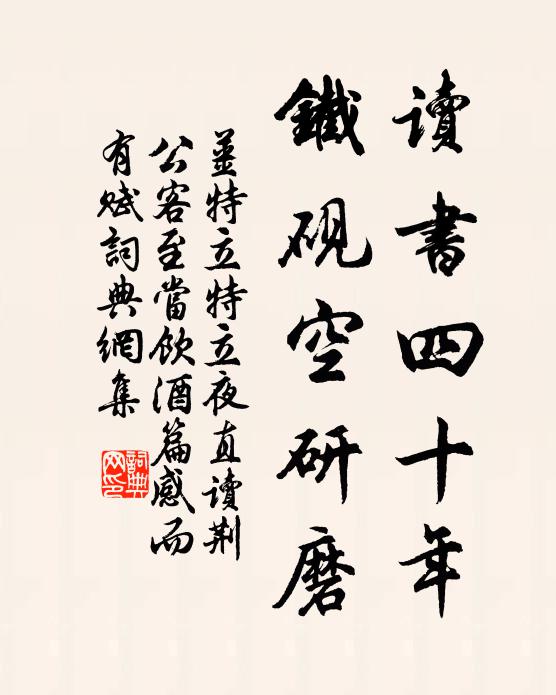 讀書四十年
鐵硯空研磨
姜特立特立夜直讀荆
公客至當飲酒篇感而
有賦詞典網集
詞典網印